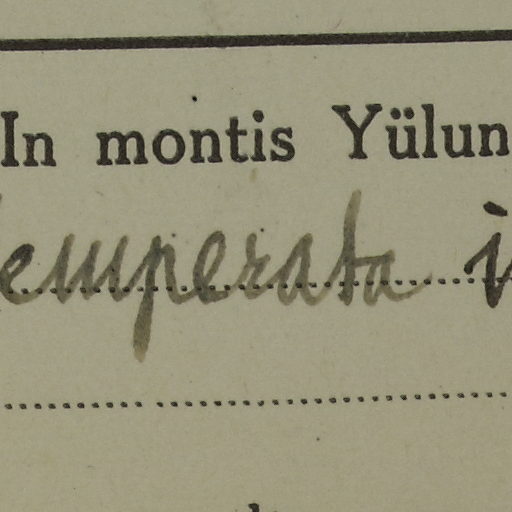 In montis Yülun
temperata i